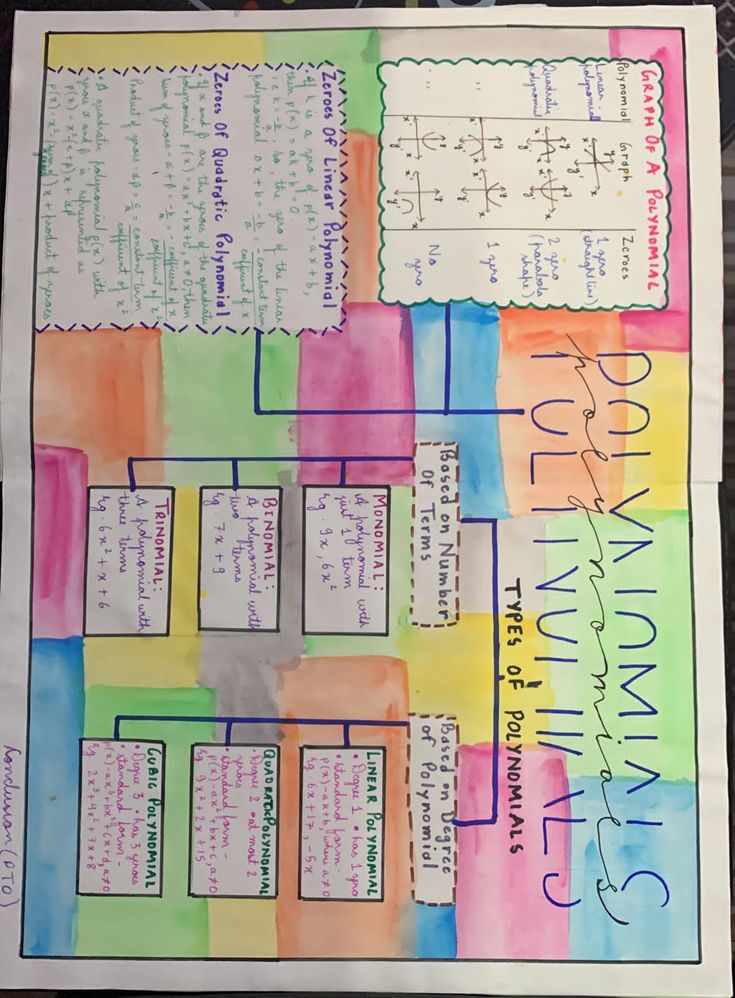 POLYNOMIALS
polynomials
GRAPH OF A POLYNOMIAL
Polynomial Graph Zeroes
Linear polynomial 1 zero (straight line)
Quadratic polynomial 2 zero (parabola shape)
" 1 zero
" No zero
Zeroes Of Linear Polynomial
• If k is a zero of p(x) = ax + b,
then p(k) = ak + b = 0.
i.e k = -b/a. So, the zero of the linear
polynomial ax + b = -b/a = -constant term / coefficient of x
Zeroes Of Quadratic Polynomial
• If α and β are the zeroes of the quadratic
polynomial p(x) = ax² + bx + c, a ≠ 0 then
Sum of zeroes = α + β = -b/a = -coefficient of x / coefficient of x²
Product of zeroes = αβ = c/a = constant term / coefficient of x²
• A quadratic polynomial p(x) with
zeroes α and β is represented as
p(x) = x² - (α + β)x + αβ
x + product of zeroes
TYPES OF POLYNOMIALS
Based on Number
Of Terms
MONOMIAL:
A polynomial with
just 1 term
eg. 9x, 6x²
BINOMIAL:
A polynomial with
two terms
eg. 7x + 9
TRINOMIAL:
A polynomial with
three terms
eg. 6x² + x + 6
Based on Degree
of Polynomial
LINEAR POLYNOMIAL
• Degree 1 • has 1 zero
• standard form -
p(x) - ax + b, where a ≠ 0
eg. 6x + 17, -5x
QUADRATIC POLYNOMIAL
• Degree 2 • at most 2
zeroes
• standard form -
p(x) - ax² + bx + c, a ≠ 0
eg 9x² + 2x + 15
CUBIC POLYNOMIAL
• Degree 3 • has 3 zeroes
• standard form -
p(x) - ax³ + bx² + cx + d, a ≠ 0
eg 2x³ + 4x² + 7x + 8
Conclusion (PTO)